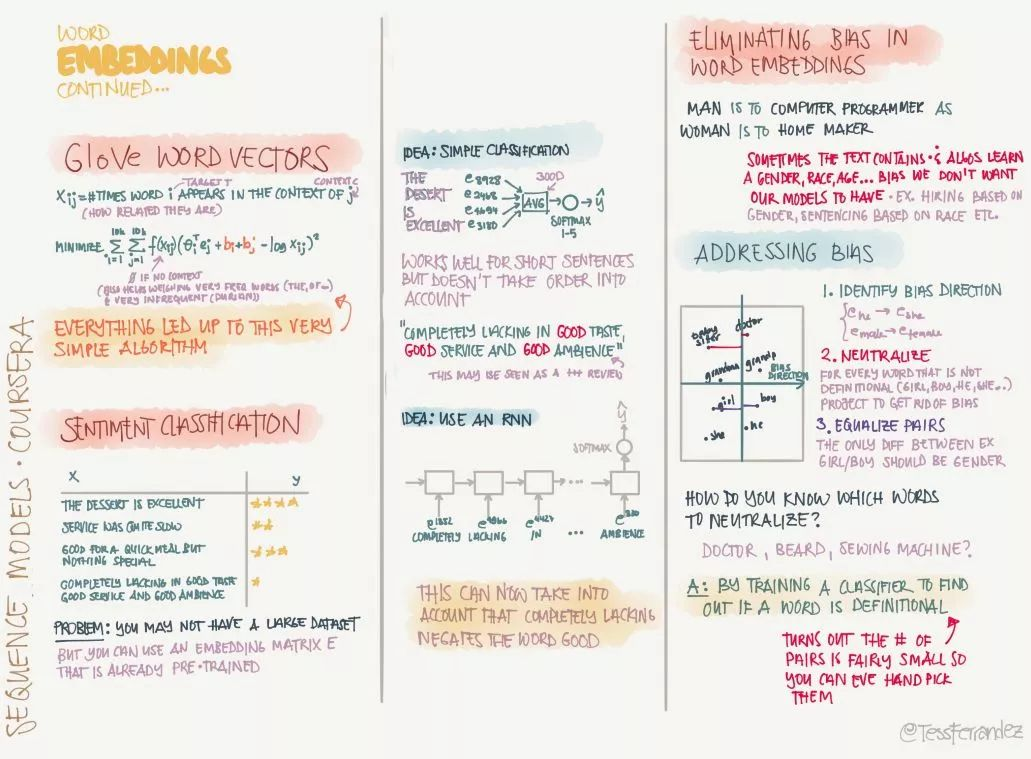 WORD
EMBEDDINGS
CONTINUED...
GloVe WORD VECTORS
TARGET T
CONTEXT C
Xij = # TIMES WORD i APPEARS IN THE CONTEXT OF j
(HOW RELATED THEY ARE)
MINIMIZE 10k Σ i=1 10k Σ j=1 f(Xij)(θiᵀej + bi + bj - log Xij)²
0 IF NO CONTEXT
(ALSO HELPS WEIGHING VERY FREQ WORDS (THE, OF...)
& VERY INFREQUENT (DURIAN))
EVERYTHING LED UP TO THIS VERY
SIMPLE ALGORITHM
SENTIMENT CLASSIFICATION
X y
THE DESSERT IS EXCELLENT ★★★★
SERVICE WAS QUITE SLOW ★★
GOOD FOR A QUICK MEAL BUT
NOTHING SPECIAL ★★★
COMPLETELY LACKING IN GOOD TASTE
GOOD SERVICE AND GOOD AMBIENCE ★
PROBLEM: YOU MAY NOT HAVE A LARGE DATASET
BUT YOU CAN USE AN EMBEDDING MATRIX E
THAT IS ALREADY PRE-TRAINED
SEQUENCE MODELS · COURSERA
IDEA: SIMPLE CLASSIFICATION
THE e8928
DESERT e2468
IS e4694
EXCELLENT e3180
300D
AVG
ŷ
SOFTMAX
1-5
WORKS WELL FOR SHORT SENTENCES
BUT DOESN'T TAKE ORDER INTO
ACCOUNT
"COMPLETELY LACKING IN GOOD TASTE,
GOOD SERVICE AND GOOD AMBIENCE"
THIS MAY BE SEEN AS A +++ REVIEW
IDEA: USE AN RNN
ŷ
SOFTMAX
...
e1852 e4966 e4427 e330
COMPLETELY LACKING IN ... AMBIENCE
THIS CAN NOW TAKE INTO
ACCOUNT THAT COMPLETELY LACKING
NEGATES THE WORD GOOD
ELIMINATING BIAS IN
WORD EMBEDDINGS
MAN IS TO COMPUTER PROGRAMMER AS
WOMAN IS TO HOME MAKER
SOMETIMES THE TEXT CONTAINS · & ALGOS LEARN
A GENDER, RACE, AGE... BIAS WE DON'T WANT
OUR MODELS TO HAVE · EX. HIRING BASED ON
GENDER, SENTENCING BASED ON RACE ETC.
ADDRESSING BIAS
baby
sitter
doctor
grandma
grandp
BIAS
DIRECTION
girl
boy
she
he
1. IDENTIFY BIAS DIRECTION
{ ehe → eshe
emale → efemale
2. NEUTRALIZE
FOR EVERY WORD THAT IS NOT
DEFINITIONAL (GIRL, BOY, HE, SHE...)
PROJECT TO GET RID OF BIAS
3. EQUALIZE PAIRS
THE ONLY DIFF BETWEEN EX
GIRL/BOY SHOULD BE GENDER
HOW DO YOU KNOW WHICH WORDS
TO NEUTRALIZE?
DOCTOR, BEARD, SEWING MACHINE?
A: BY TRAINING A CLASSIFIER TO FIND
OUT IF A WORD IS DEFINITIONAL
TURNS OUT THE # OF
PAIRS IS FAIRLY SMALL SO
YOU CAN EVE HAND PICK
THEM
@TessFerrandez